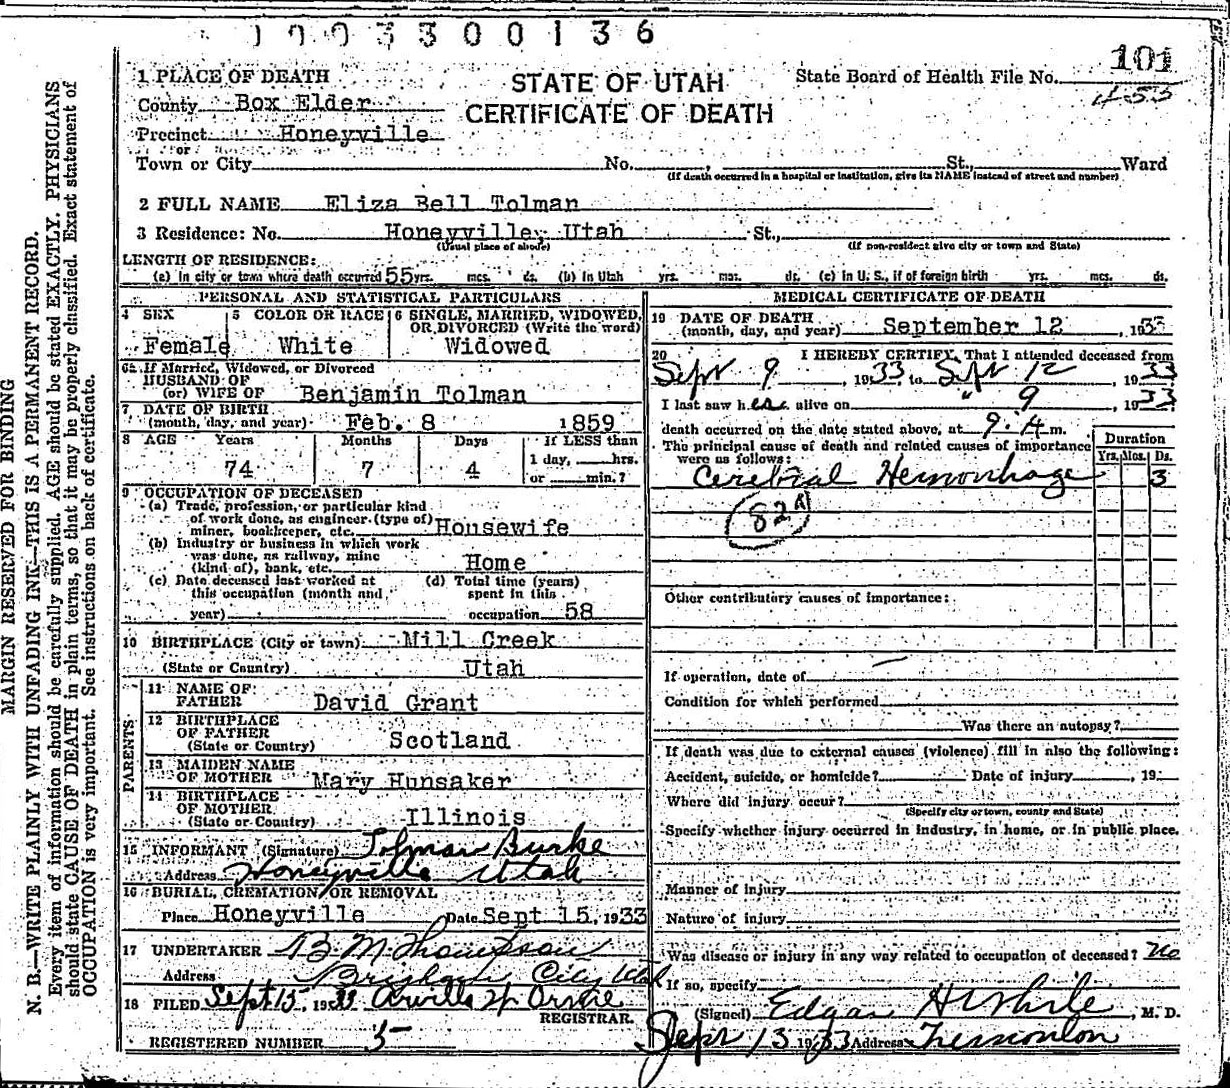 1003300136
101
455
STATE OF UTAH
CERTIFICATE OF DEATH
State Board of Health File No.
1 PLACE OF DEATH
County Box Elder
Precinct Honeyville
or
Town or City No. , St., Ward
(If death occurred in a hospital or institution, give its NAME instead of street and number)
2 FULL NAME Eliza Bell Tolman
3 Residence: No. Honeyville, Utah St.,
(Usual place of abode) (If non-resident give city or town and State)
LENGTH OF RESIDENCE:
(a) In city or town where death occurred 55 yrs. mos. ds. (b) In Utah yrs. mos. ds. (c) in U. S., if of foreign birth yrs. mos. ds.
PERSONAL AND STATISTICAL PARTICULARS
4 SEX
Female
5 COLOR OR RACE
White
6 SINGLE, MARRIED, WIDOWED, OR DIVORCED (Write the word)
Widowed
6a. If Married, Widowed, or Divorced
HUSBAND OF
(or) WIFE OF Benjamin Tolman
7 DATE OF BIRTH
(month, day, and year) Feb. 8 1859
8 AGE Years Months Days If LESS than
74 7 4 1 day, hrs.
or min.?
9 OCCUPATION OF DECEASED
(a) Trade, profession, or particular kind
of work done, as engineer (type of)
miner, bookkeeper, etc. Housewife
(b) Industry or business in which work
was done, as railway, mine
(kind of), bank, etc. Home
(c) Date deceased last worked at
this occupation (month and
year)
(d) Total time (years)
spent in this
occupation 58
10 BIRTHPLACE (City or town) Mill Creek
(State or Country) Utah
PARENTS
11 NAME OF
FATHER David Grant
12 BIRTHPLACE
OF FATHER
(State or Country) Scotland
13 MAIDEN NAME
OF MOTHER Mary Hunsaker
14 BIRTHPLACE
OF MOTHER
(State or Country) Illinois
15 INFORMANT (Signature) Tolman Burke
Address Honeyville Utah
16 BURIAL, CREMATION OR REMOVAL
Place Honeyville Date Sept 15, 1933
17 UNDERTAKER B M Thompson
Address Brigham City Utah
18 FILED Sept 15, 1933 Arvilla Orme
REGISTRAR.
REGISTERED NUMBER 5
MEDICAL CERTIFICATE OF DEATH
19 DATE OF DEATH
(month, day, and year) September 12, 1933
20 I HEREBY CERTIFY, That I attended deceased from
Sept 9, 1933, to Sept 12, 1933
I last saw her alive on " 9, 1933
death occurred on the date stated above, at 9. A m.
The principal cause of death and related causes of importance
were as follows:
Duration
Yrs. Mos. Ds.
Cerebral Hemorrhage 3
82A
Other contributory causes of importance:
If operation, date of
Condition for which performed
Was there an autopsy?
If death was due to external causes (violence) fill in also the following:
Accident, suicide, or homicide? Date of injury , 19
Where did injury occur?
(Specify city or town, county and State)
Specify whether injury occurred in industry, in home, or in public place.
Manner of injury
Nature of injury
Was disease or injury in any way related to occupation of deceased? No
If so, specify
(Signed) Edgar H White, M. D.
Sept 13 1933 Address Tremonton
MARGIN RESERVED FOR BINDING
N. B.—WRITE PLAINLY WITH UNFADING INK—THIS IS A PERMANENT RECORD.
Every item of information should be carefully supplied. AGE should be stated EXACTLY. PHYSICIANS
should state CAUSE OF DEATH in plain terms, so that it may be properly classified. Exact statement of
OCCUPATION is very important. See instructions on back of certificate.